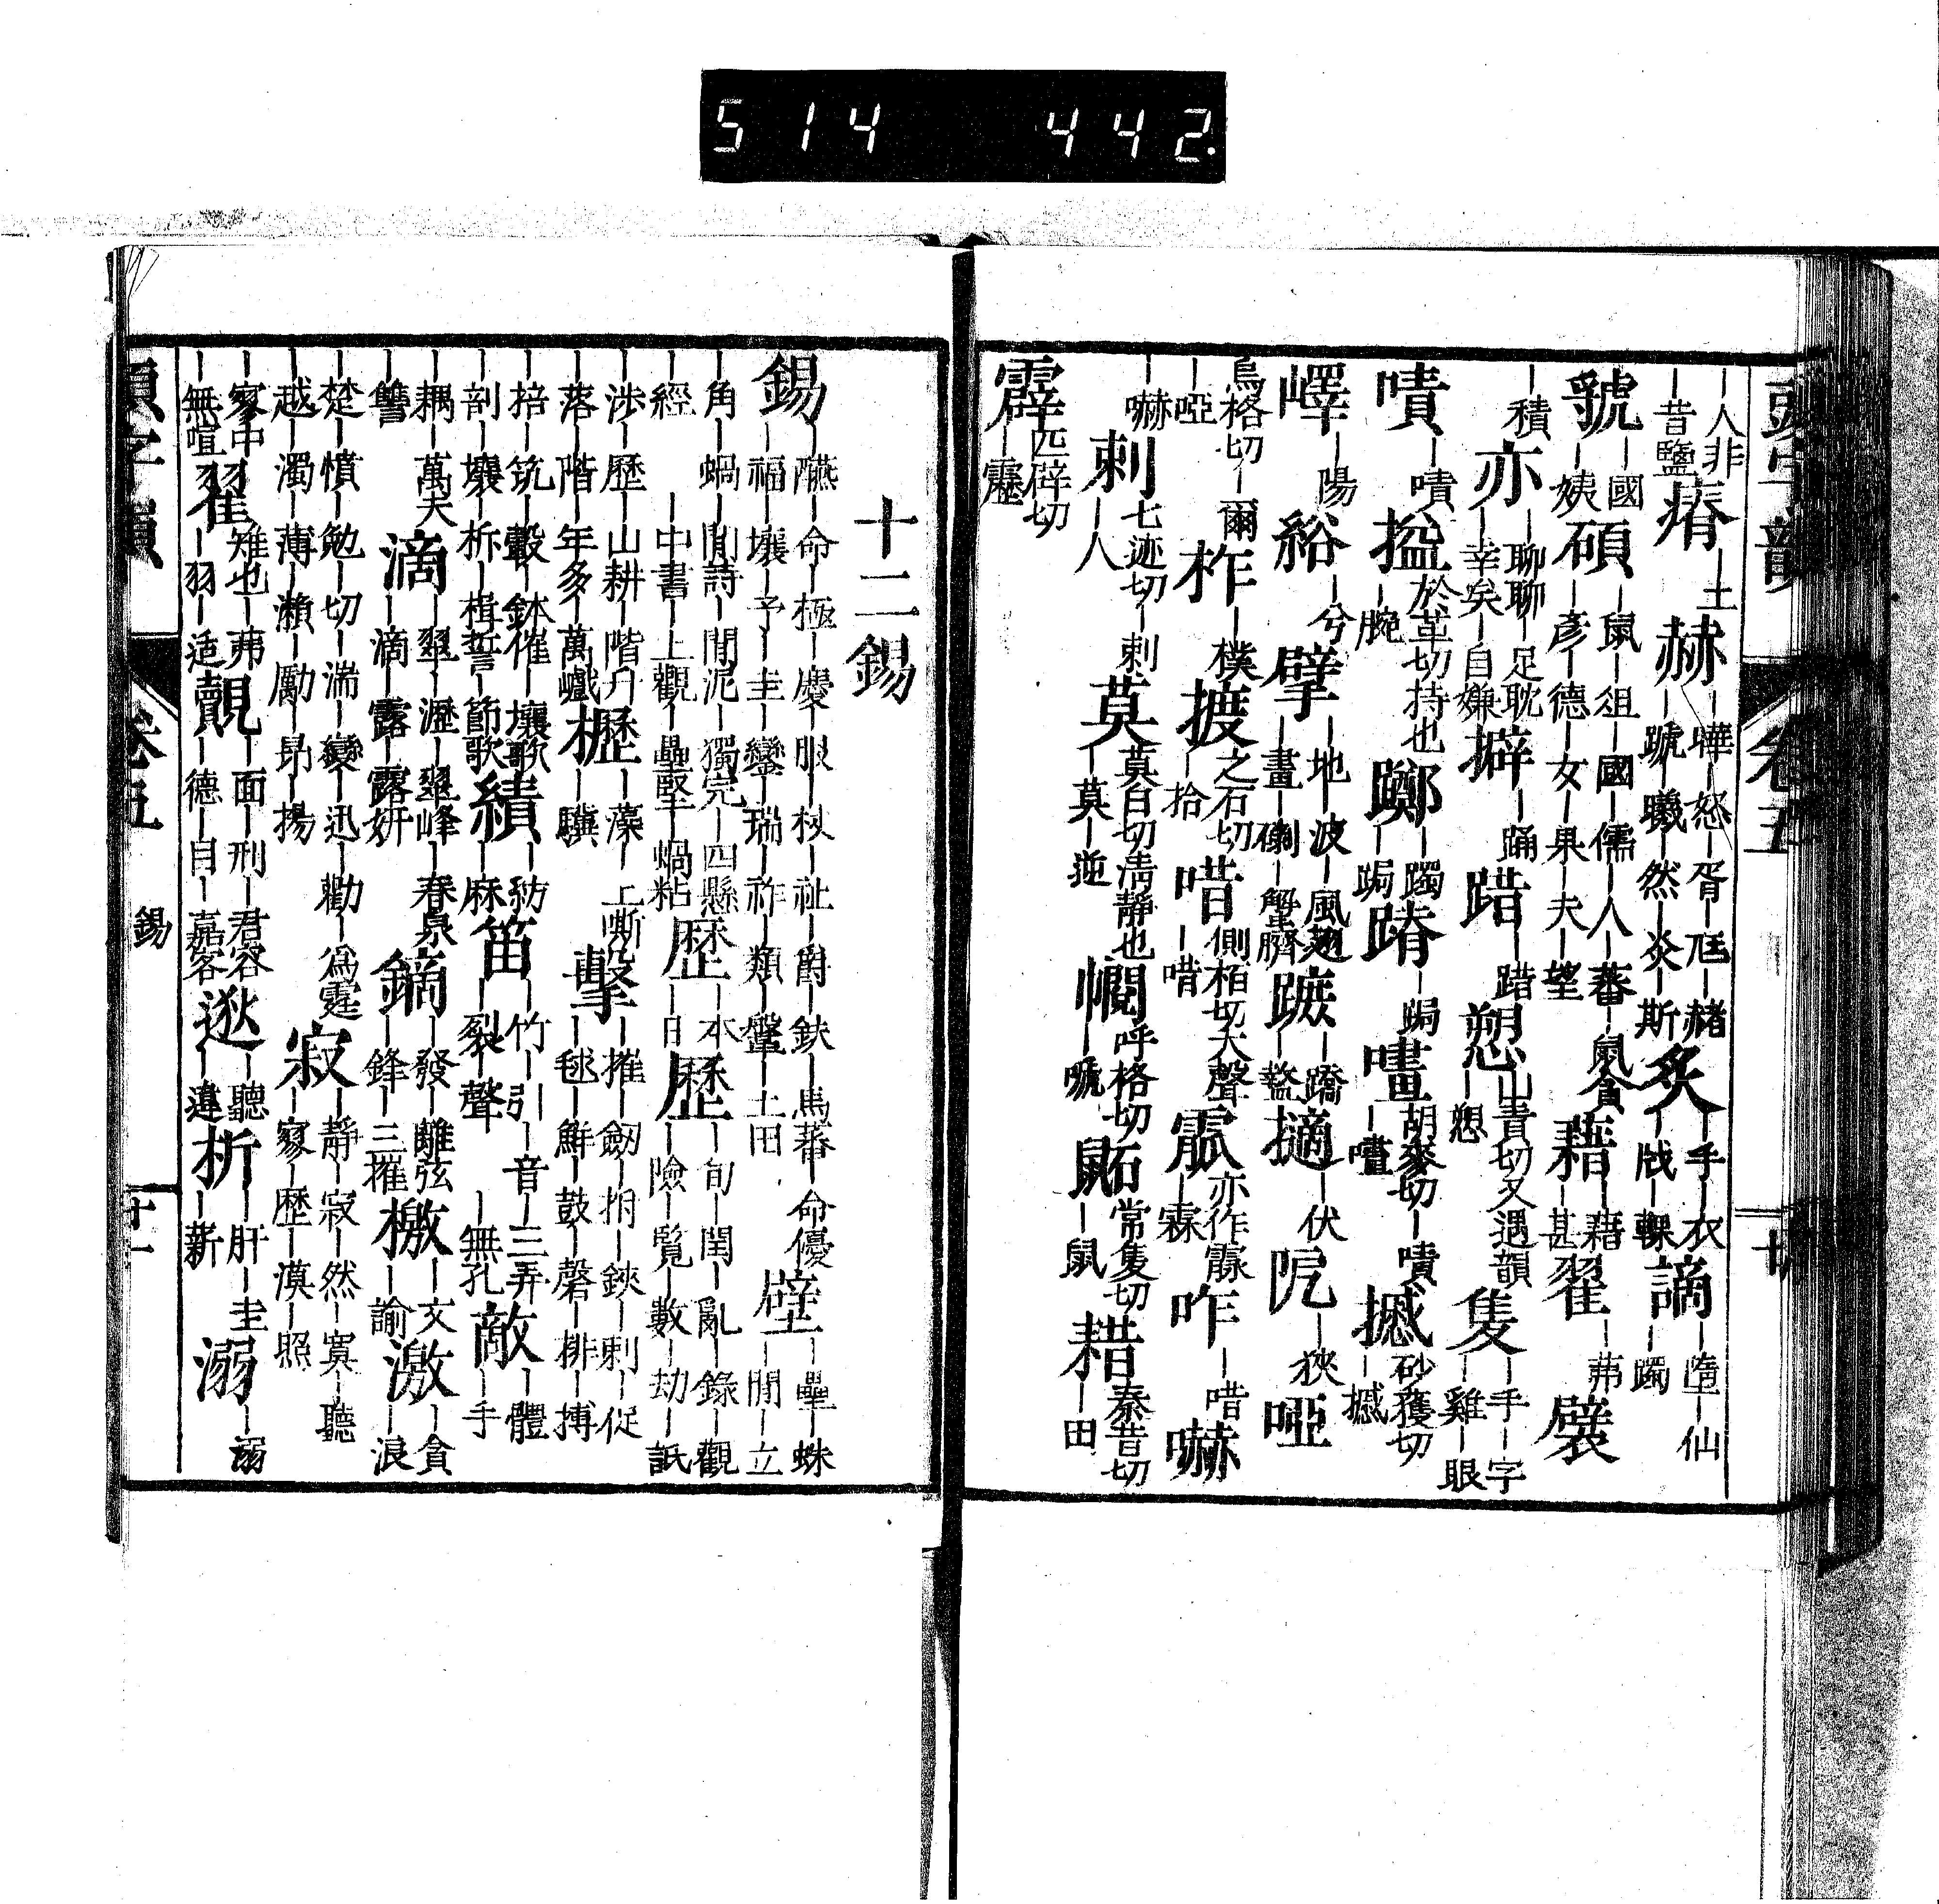 514 442.
頭字韻 卷五 十
｜人非｜昔鹽 瘠｜土 赫｜嘩｜怒｜胥｜尫｜赭｜蹏｜曦｜然｜炎｜斯 炙｜手｜衣｜戝｜輠 謫｜墮｜仙｜躅
虢｜國｜姨 碩｜鼠｜俎｜國｜儒｜人｜蕃｜鼠貪｜彥｜德｜女｜果｜夫｜望 藉｜藉｜甚 翟｜茀 襞
｜積 亦｜聊聊｜足耽｜幸矣｜自嫌 擗｜踊 踖｜踖 愬山責切又遇韻｜愬 隻｜手｜字｜雞｜眼
嘖｜嘖 搤於革切持也｜腕 躑｜躅｜跼 蹐｜跼 嚍胡麥切｜嘖｜嚍 摵砂獲切｜摵
嶧｜陽 綌｜兮 擘｜地｜波｜風翅｜畫｜㓸｜蟹臍 蹠｜蹻｜盭 擿｜伏 阨｜狹 啞
烏格切｜爾｜啞 柞｜樸 摭之石切｜拾 唶側栢切大聲｜唶 霢亦作霡｜霂 咋｜唶 嚇
｜嚇 刺七迹切｜刺｜人 莫莫白切淸靜也｜莫｜逆 㦍呼格切｜唬 鼫常隻切｜鼠 耤秦昔切｜田
霹匹辟切｜靂
十二錫
錫｜醼｜命｜極｜慶｜服｜杖｜祉｜爵｜鈇｜馬蕃｜命優｜福｜壤｜予｜圭｜鑾｜瑞｜祚｜類｜鞶｜土田 壁｜壘｜蛛｜閒｜立
｜角｜蝸｜閒詩｜閒泥｜獨完｜四縣｜經｜中書｜上觀｜壘堅｜蝸粘 歴｜本｜日 歷｜旬｜閏｜亂｜錄｜觀｜險｜覧｜數｜劫｜詆
｜涉｜歷｜山耕｜階升｜落｜階｜年多｜萬巇 櫪｜藻｜上嘶｜驥 擊｜摧｜劔｜柎｜鋏｜刺｜促｜毬｜鮮｜鼓｜磬｜排｜搏
｜掊｜筑｜轂｜鉢催｜壤歌｜剖｜壤｜柝｜楫誓｜節歌 績｜紡｜麻 笛｜竹｜引｜音｜三弄｜裂｜聲｜無孔 敵｜體｜手
｜耦｜萬夫｜讐 滴｜翠｜瀝｜翠峰｜春泉｜滴｜露｜露姸 鏑｜發｜離弦｜鋒｜三摧 檄｜文｜諭 激｜貪｜浪
｜楚｜憤｜勉｜切｜湍｜變｜迅｜勸｜爲霆｜越｜濁｜薄｜瀨｜勵｜昻｜揚 寂｜靜｜寂｜然｜寞｜聽｜寥｜歷｜漠｜照
｜寥中｜無喧 翟｜雉也｜茀｜羽｜葹 覿｜面｜刑｜君容｜德｜目｜嘉客 逖｜聽｜違 析｜肝｜圭｜薪 溺｜溺
卷五 錫 十一